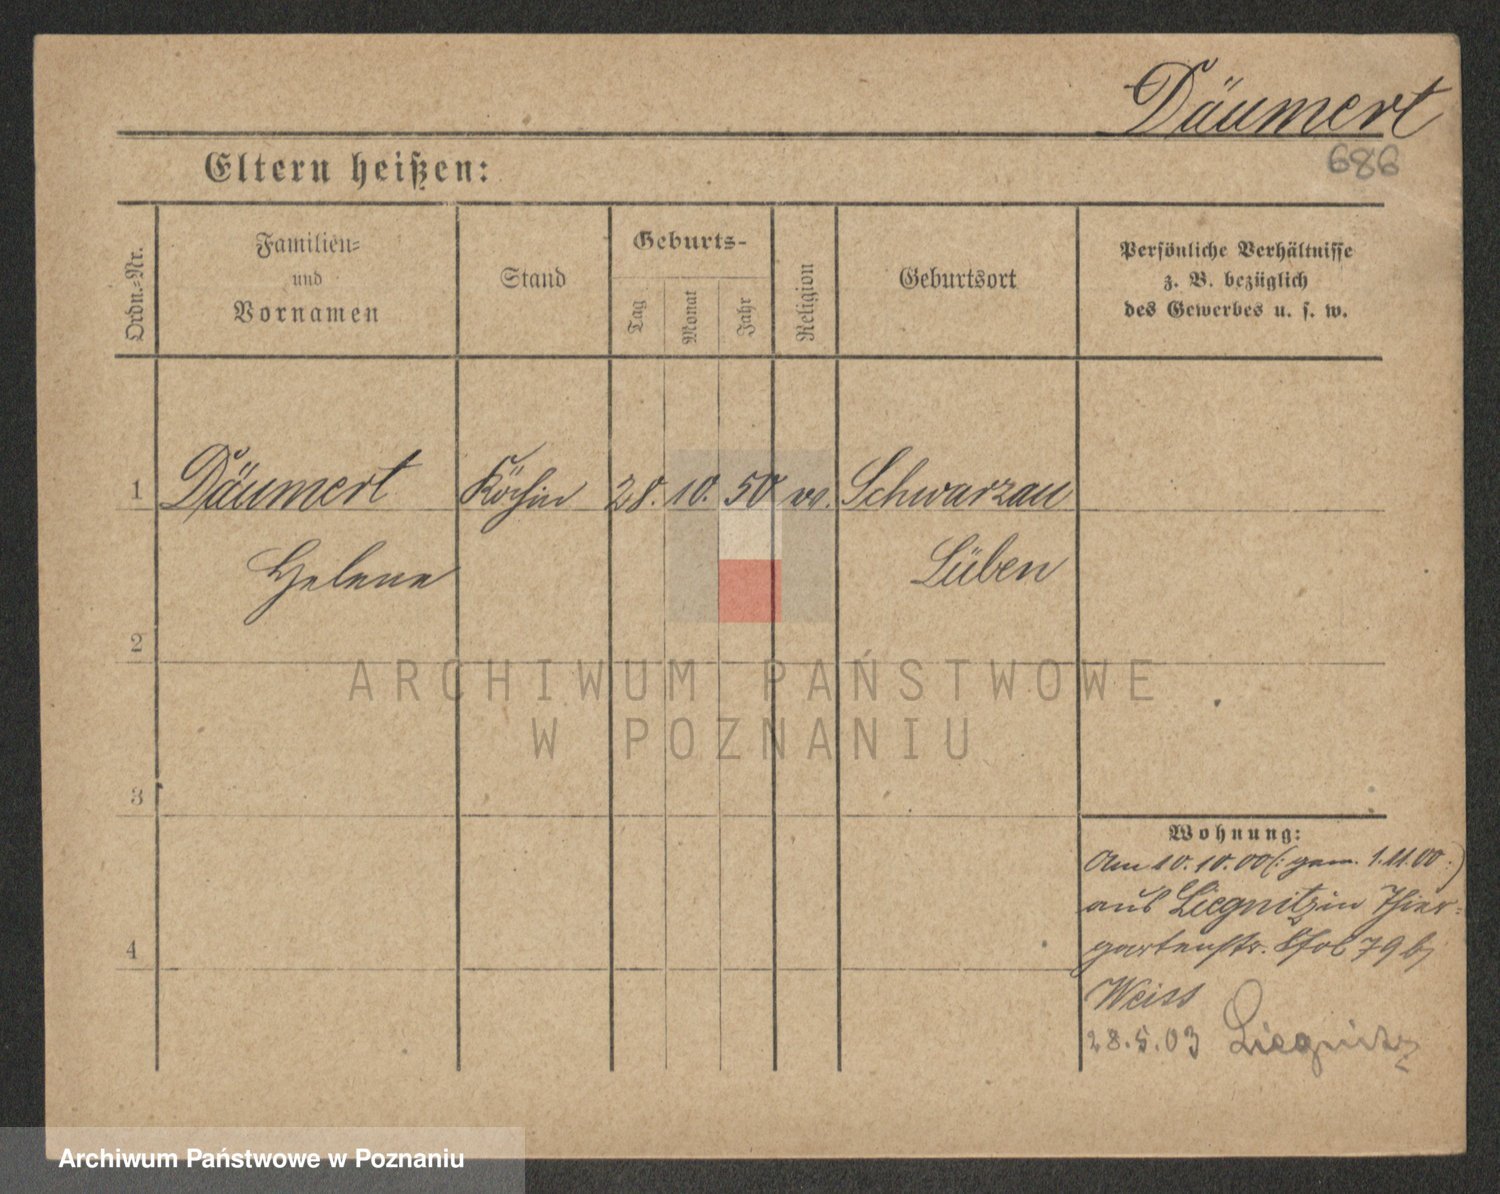 Däumert
686
Eltern heißen:
Ordn.-Nr.
Familien-
und
Vornamen
Stand
Geburts-
Tag
Monat
Jahr
Religion
Geburtsort
Persönliche Verhältnisse
z. B. bezüglich
des Gewerbes u. s. w.
1 Däumert Köchin 28. 10. 50 ev. Schwarzau
Helene Lüben
2
ARCHIWUM PAŃSTWOWE
W POZNANIU
3
Wohnung:
Am 10.10.00 (: gem. 1.11.00 :)
aus Liegnitz in Thier-
gartenstr. 79 b/
4
Weiss
28.5.03 Liegnitz
Archiwum Państwowe w Poznaniu